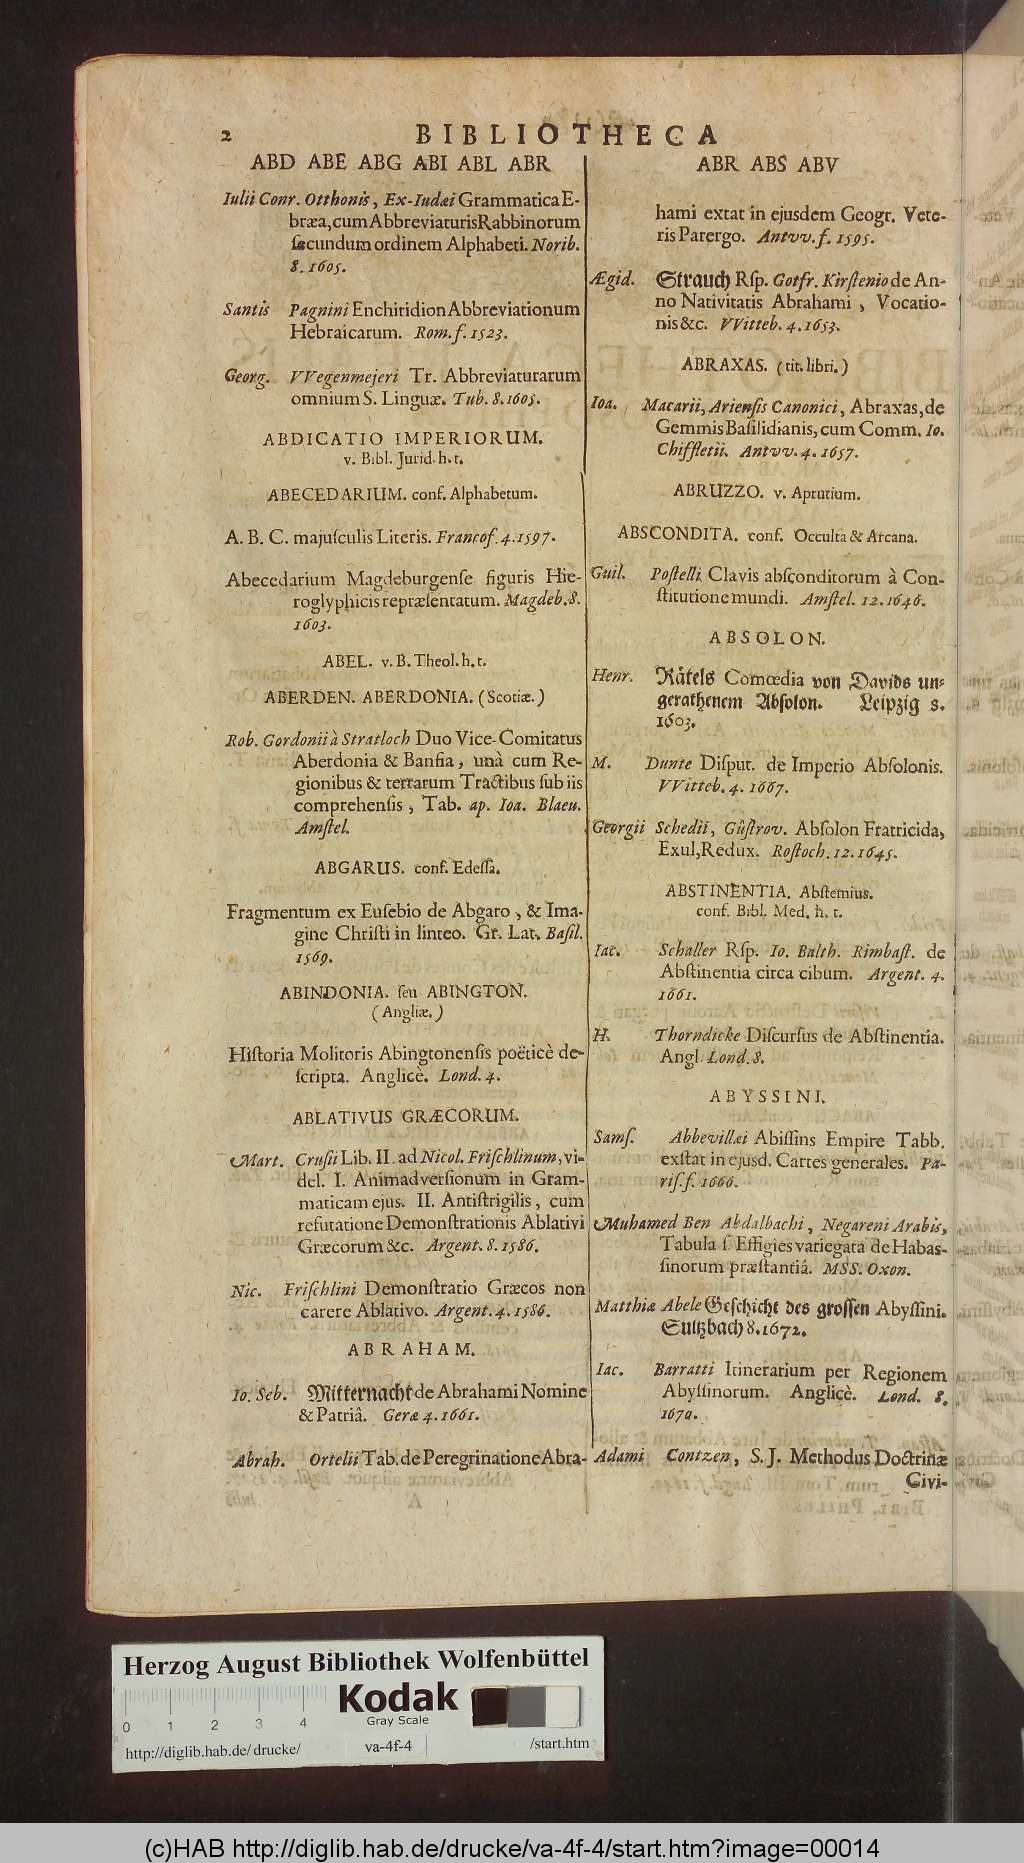 2 BIBLIOTHECA
ABD ABE ABG ABI ABL ABR
Iulii Conr. Otthonis, Ex-Iudæi Grammatica E-
bræa, cum Abbreviaturis Rabbinorum
ſecundum ordinem Alphabeti. Norib.
8. 1605.
Santis Pagnini Enchiridion Abbreviationum
Hebraicarum. Rom. f. 1523.
Georg. VVegenmejeri Tr. Abbreviaturarum
omnium S. Linguæ. Tub. 8. 1605.
ABDICATIO IMPERIORUM.
v. Bibl. Jurid. h. t.
ABECEDARIUM. conf. Alphabetum.
A. B. C. majuſculis Literis. Francof. 4. 1597.
Abecedarium Magdeburgenſe figuris Hie-
roglyphicis repræſentatum. Magdeb. 8.
1603.
ABEL. v. B. Theol. h. t.
ABERDEN. ABERDONIA. (Scotiæ.)
Rob. Gordonii à Stratloch Duo Vice-Comitatus
Aberdonia & Banfia, unà cum Re-
gionibus & terrarum Tractibus ſub iis
comprehenſis, Tab. ap. Ioa. Blaeu.
Amſtel.
ABGARUS. conf. Edeſſa.
Fragmentum ex Euſebio de Abgaro, & Ima-
gine Chriſti in linteo. Gr. Lat. Baſil.
1569.
ABINDONIA. ſeu ABINGTON.
(Angliæ.)
Hiſtoria Molitoris Abingtonenſis poëticè de-
ſcripta. Anglicè. Lond. 4.
ABLATIVUS GRÆCORUM.
Mart. Cruſii Lib. II. ad Nicol. Friſchlinum, vi-
del. I. Animadverſionum in Gram-
maticam ejus. II. Antiſtrigilis, cum
refutatione Demonſtrationis Ablativi
Græcorum &c. Argent. 8. 1586.
Nic. Friſchlini Demonſtratio Græcos non
carere Ablativo. Argent. 4. 1586.
ABRAHAM.
Io. Seb. Mitternacht de Abrahami Nomine
& Patriâ. Geræ 4. 1661.
Abrah. Ortelii Tab. de Peregrinatione Abra-
ABR ABS ABV
hami extat in ejusdem Geogr. Vete-
ris Parergo. Antvv. f. 1595.
Ægid. Strauch Rſp. Gotfr. Kirſtenio de An-
no Nativitatis Abrahami, Vocatio-
nis &c. VVitteb. 4. 1653.
ABRAXAS. (tit. libri.)
Ioa. Macarii, Arienſis Canonici, Abraxas, de
Gemmis Baſilidianis, cum Comm. Io.
Chiffletii. Antvv. 4. 1657.
ABRUZZO. v. Aprutium.
ABSCONDITA. conf. Occulta & Arcana.
Guil. Poſtelli Clavis abſconditorum à Con-
ſtitutione mundi. Amſtel. 12. 1646.
ABSOLON.
Henr. Rätels Comœdia von Davids un-
gerathenem Abſolon. Leipzig 8.
1603.
M. Dunte Diſput. de Imperio Abſolonis.
VVitteb. 4. 1667.
Georgii Schedii, Gûſtrov. Abſolon Fratricida,
Exul, Redux. Roſtoch. 12. 1645.
ABSTINENTIA. Abſtemius.
conf. Bibl. Med. h. t.
Iac. Schaller Rſp. Io. Balth. Rimbaſt. de
Abſtinentia circa cibum. Argent. 4.
1661.
H. Thorndicke Diſcurſus de Abſtinentia.
Angl. Lond. 8.
ABYSSINI.
Samſ. Abbevillæi Abiſſins Empire Tabb.
exſtat in ejusd. Cartes generales. Pa-
riſ. f. 1666.
Muhamed Ben Abdalbachi, Negareni Arabis,
Tabula ſ. Effigies variegata de Habas-
ſinorum præſtantiâ. MSS. Oxon.
Matthiæ Abele Geſchicht des groſſen Abyſſini.
Sultzbach 8. 1672.
Iac. Barratti Itinerarium per Regionem
Abyſſinorum. Anglicè. Lond. 8.
1670.
Adami Contzen, S. J. Methodus Doctrinæ
Civi-
Herzog August Bibliothek Wolfenbüttel
Kodak
Gray Scale
0 1 2 3 4
http://diglib.hab.de/drucke/ va-4f-4 /start.htm
(c)HAB http://diglib.hab.de/drucke/va-4f-4/start.htm?image=00014